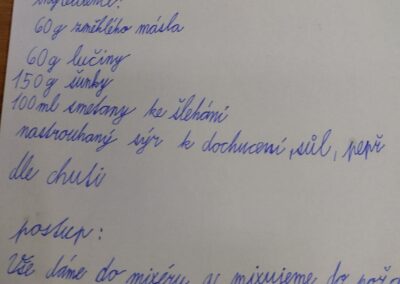 ingredience:
60g změklého másla
60g lučiny
150g šunky
100ml smetany ke šlehání
nastrouhaný sýr k dochucení, sůl, pepř
dle chuti
postup:
Vše dáme do mixéru a mixujeme do